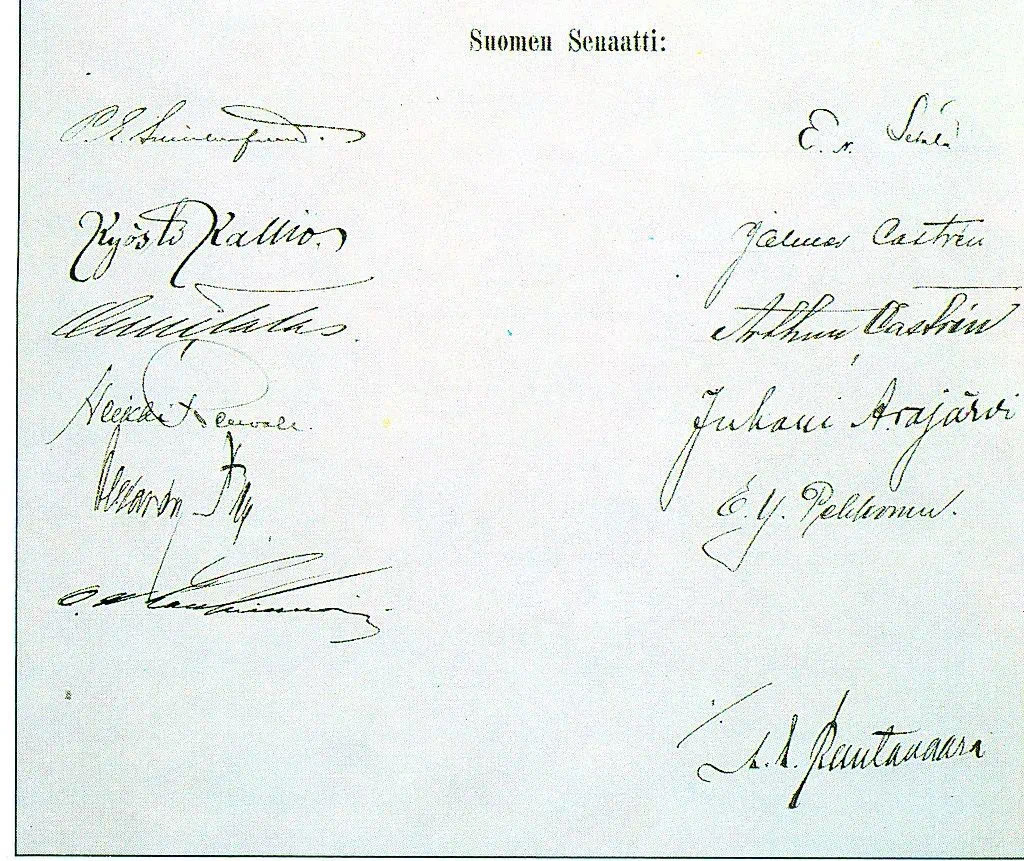 Suomen Senaatti:
P. E. Svinhufvud.
E. N. Setälä
Kyösti Kallio.
Jalmar Castrén
Onni Talas.
Arthur Castrén
Heikki Renvall.
Juhani Arajärvi
Alexander Frey.
E. Y. Pehkonen.
O. W. Louhivuori
A. E. Rautavaara